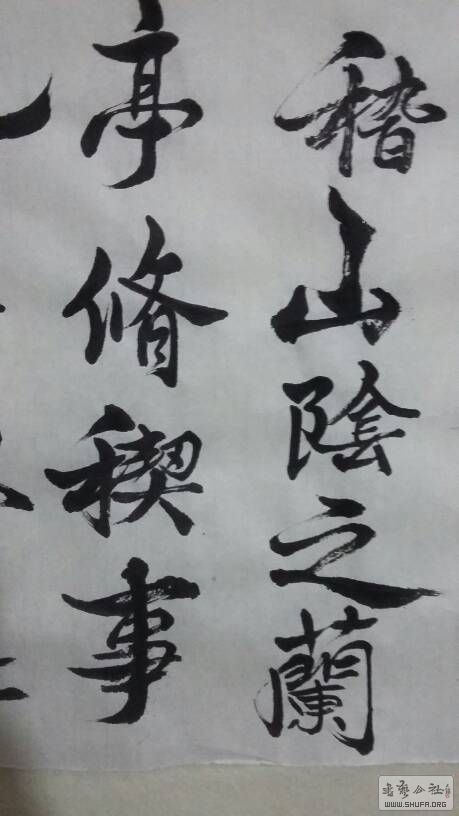 稽山陰之蘭
亭脩稧事
书艺公社
WWW.SHUFA.ORG